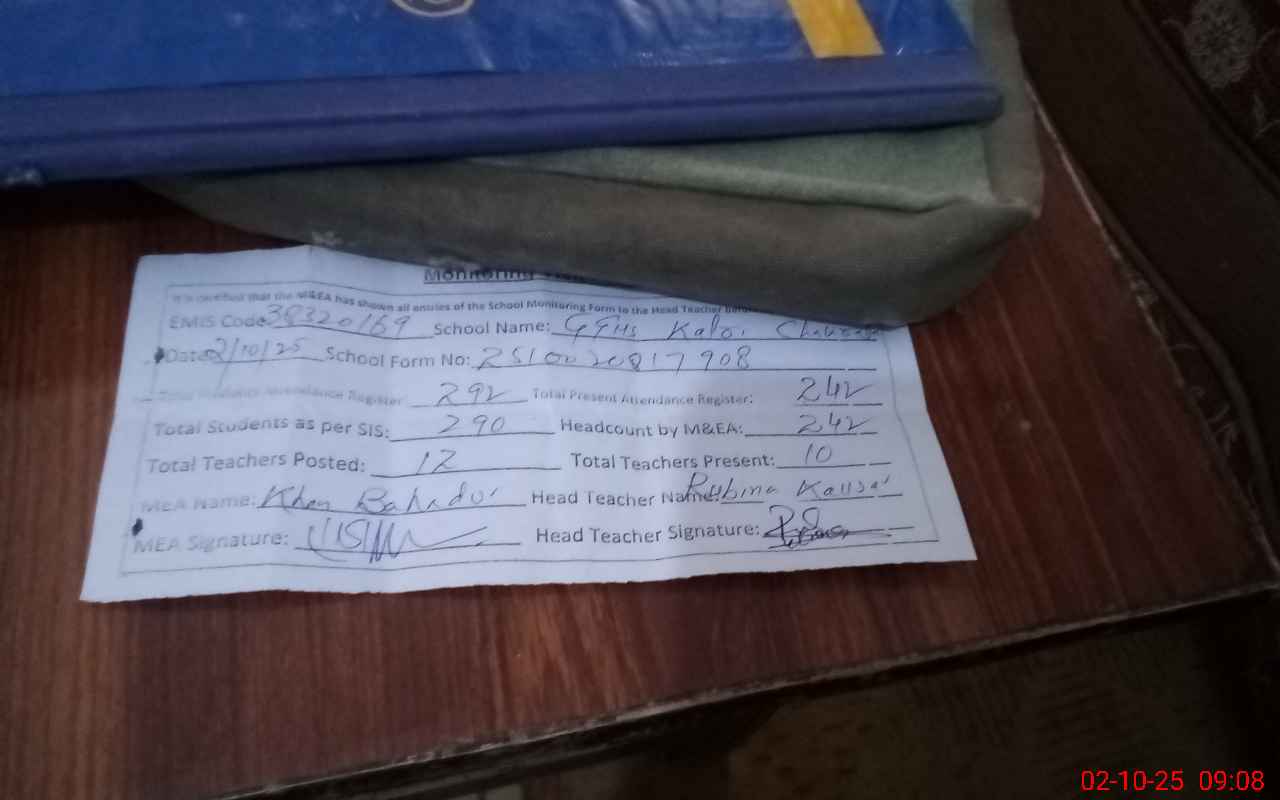 Monitoring
It is certified that the M&EA has shown all entries of the School Monitoring Form to the Head Teacher before
EMIS Code 38320169 School Name: GGHS Kalor
Date: 2/10/25 School Form No: 2510020817908
Total Students Attendance Register 292 Total Present Attendance Register: 242
Total Students as per SIS: 290 Headcount by M&EA: 242
Total Teachers Posted: 12 Total Teachers Present: 10
MEA Name: Khan Bahadur Head Teacher Name: Rubina Kausar
MEA Signature: Head Teacher Signature:
02-10-25 09:08